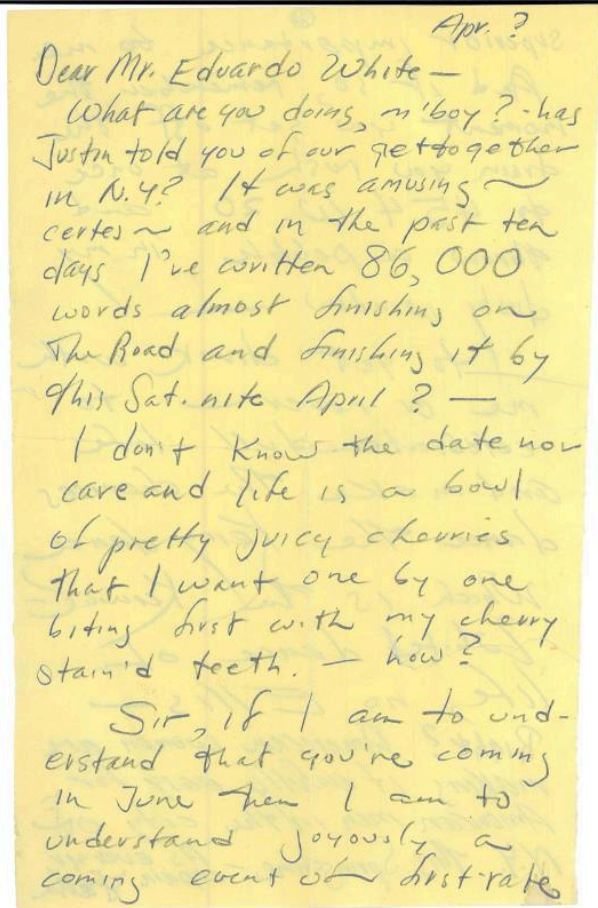 Apr. ?
Dear Mr. Eduardo White —
What are you doing, m'boy? - has
Justin told you of our gettogether
in N.Y.? It was amusing ~
certes ~ and in the past ten
days I've written 86,000
words almost finishing on
The Road and finishing it by
this Sat. nite April ? —
I don't know the date nor
care and life is a bowl
of pretty juicy cherries
that I want one by one
biting first with my cherry
stain'd teeth. — how?
Sir, if I am to und-
erstand that you're coming
in June then I am to
understand joyously a
coming event of first-rate